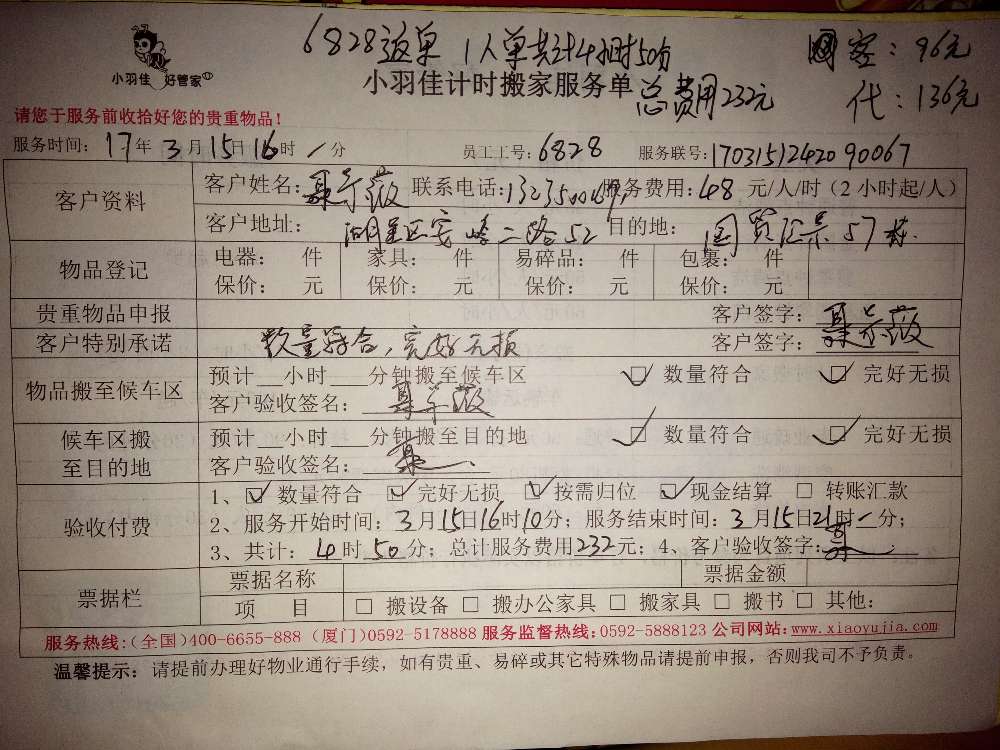 6828返单 1人单共计4小时50分 客：96元
小羽佳 好管家
小羽佳计时搬家服务单 总费用232元 代：136元
请您于服务前收拾好您的贵重物品！
服务时间：17年3月15日16时/分 员工工号：6828 服务联号：170315124209 0067
客户资料 客户姓名： 联系电话： 服务费用：48元/人/时（2小时起/人）
客户地址： 二路52 目的地：国贸汇景57栋
物品登记 电器： 件 家具： 件 易碎品： 件 包裹： 件
保价： 元 保价： 元 保价： 元 保价： 元
贵重物品申报 客户签字：
客户特别承诺 数量符合，完好无损 客户签字：
物品搬至候车区 预计__小时___分钟搬至候车区 ☑ 数量符合 ☑ 完好无损
客户验收签名：
候车区搬至目的地 预计__小时___分钟搬至目的地 ☑ 数量符合 ☑ 完好无损
客户验收签名：
验收付费 1、☑ 数量符合 ☑ 完好无损 ☑ 按需归位 ☑ 现金结算 □ 转账汇款
2、服务开始时间：3月15日16时10分；服务结束时间：3月15日21时/分；
3、共计：4时50分；总计服务费用232元；4、客户验收签字：
票据栏 票据名称 票据金额
项 目 □ 搬设备 □ 搬办公家具 □ 搬家具 □ 搬书 □ 其他：
服务热线：(全国)400-6655-888 (厦门)0592-5178888 服务监督热线：0592-5888123 公司网站：www.xiaoyujia.com
温馨提示：请提前办理好物业通行手续，如有贵重、易碎或其它特殊物品请提前申报，否则我司不予负责。